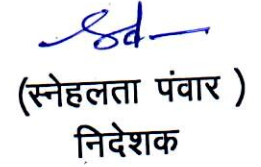 Sd-
(स्नेहलता पंवार )
निदेशक